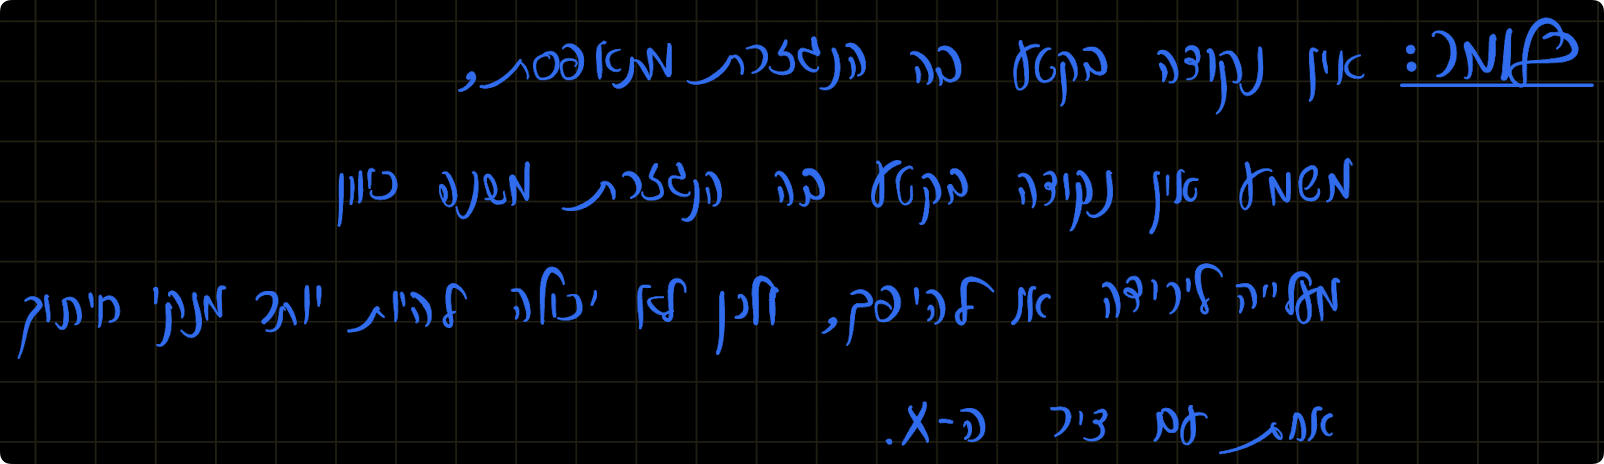 כלומר: אין נקודה בקטע בה הנגזרת מתאפסת,
משמע אין נקודה בקטע בה הנגזרת משנה כיוון
מעלייה לירידה או להיפך, ולכן לא יכולה להיות יותר מנק' חיתוך
אחת עם ציר ה-X.